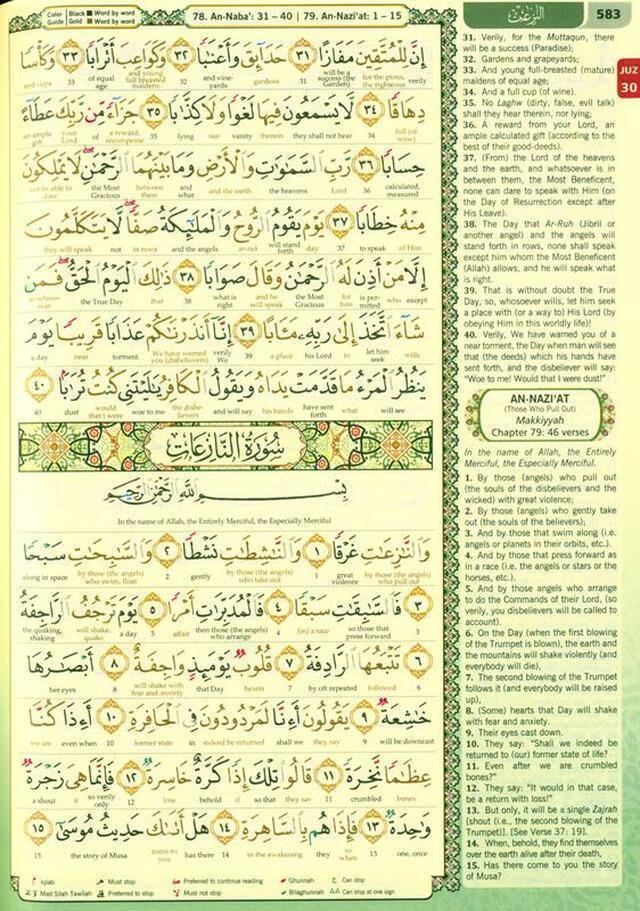 Color Guide
Black Word by word
Gold Word by word
78. An-Naba': 31 – 40 | 79. An-Nazi'at: 1 – 15
إِنَّ لِلْمُتَّقِينَ مَفَازًا ٣١ حَدَآئِقَ وَأَعْنَٰبًا ٣٢ وَكَوَاعِبَ أَتْرَابًا ٣٣ وَكَأْسًا
and cups 33 of equal age and young full breasted maidens 32 and vineyards gardens 31 will be a success (the Garden) for the pious, the righteous verily
دِهَاقًا ٣٤ لَّا يَسْمَعُونَ فِيهَا لَغْوًا وَلَا كِذَّٰبًا ٣٥ جَزَآءً مِّن رَّبِّكَ عَطَآءً
an ample gift your Lord of a reward, recompense 35 lying nor vanity therein they shall not hear 34 full (of wine)
حِسَابًا ٣٦ رَّبِّ السَّمَٰوَٰتِ وَالْأَرْضِ وَمَا بَيْنَهُمَا الرَّحْمَٰنِ لَا يَمْلِكُونَ
not be able to dare the Most Gracious between them and what and the earth the heavens Lord 36 calculated, measured
مِنْهُ خِطَابًا ٣٧ يَوْمَ يَقُومُ الرُّوحُ وَالْمَلَٰٓئِكَةُ صَفًّا لَّا يَتَكَلَّمُونَ
they will speak not in rows and the angels ar-ruh will stand forth day 37 to speak of Him
إِلَّا مَنْ أَذِنَ لَهُ الرَّحْمَٰنُ وَقَالَ صَوَابًا ٣٨ ذَٰلِكَ الْيَوْمُ الْحَقُّ فَمَن
so whosoever the True Day that 38 what is right and he will speak the Most Gracious for him is permitted who except
شَآءَ اتَّخَذَ إِلَىٰ رَبِّهِ مَـَٔابًا ٣٩ إِنَّآ أَنذَرْنَٰكُمْ عَذَابًا قَرِيبًا يَوْمَ
a day near torment We have warned you (disbelievers) verily We 39 a place his Lord to let him seek wills
يَنظُرُ الْمَرْءُ مَا قَدَّمَتْ يَدَاهُ وَيَقُولُ الْكَافِرُ يَٰلَيْتَنِي كُنتُ تُرَٰبًا ٤٠
40 dust would that i were woe to me the disbelievers and will say his hands have sent forth what will see
سُورَةُ النَّازِعَاتِ
بِسْمِ اللَّهِ الرَّحْمَٰنِ الرَّحِيمِ
In the name of Allah, the Entirely Merciful, the Especially Merciful
وَالنَّٰزِعَٰتِ غَرْقًا ١ وَالنَّٰشِطَٰتِ نَشْطًا ٢ وَالسَّٰبِحَٰتِ سَبْحًا
along in space by those (the angels) who swim, float 2 gently by those (the angels) who take out 1 great violence by those (the angels) who pull out
٣ فَالسَّٰبِقَٰتِ سَبْقًا ٤ فَالْمُدَبِّرَٰتِ أَمْرًا ٥ يَوْمَ تَرْجُفُ الرَّاجِفَةُ
the quaking, shaking will shake, quake a day 5 affair then those (the angels) who arrange 4 (in) a race so those that press forward 3
٦ تَتْبَعُهَا الرَّادِفَةُ ٧ قُلُوبٌ يَوْمَئِذٍ وَاجِفَةٌ ٨ أَبْصَٰرُهَا
her eyes 8 will shake with fear and anxiety that Day hearts 7 by oft repeated followed 6
خَٰشِعَةٌ ٩ يَقُولُونَ أَءِنَّا لَمَرْدُودُونَ فِي الْحَافِرَةِ ١٠ أَءِذَا كُنَّا
we are even when 10 former state in indeed be returned shall we they say 9 will be downcast
عِظَٰمًا نَّخِرَةً ١١ قَالُوا تِلْكَ إِذًا كَرَّةٌ خَاسِرَةٌ ١٢ فَإِنَّمَا هِيَ زَجْرَةٌ
a shout it so verily only 12 loss behold if so that they say 11 crumbled bones
وَٰحِدَةٌ ١٣ فَإِذَا هُم بِالسَّاهِرَةِ ١٤ هَلْ أَتَىٰكَ حَدِيثُ مُوسَىٰٓ ١٥
15 the story of Musa come to you has there 14 in the awakening they so when 13 one, once
Iqlab Must stop Preferred to continue reading Ghunnah Can stop
Mad Silah Tawilah Preferred to stop Must not stop Bilaghunnah Can stop at one sign
النزعت
583
JUZ 30
31. Verily, for the Muttaqun, there
will be a success (Paradise);
32. Gardens and grapeyards;
33. And young full-breasted (mature)
maidens of equal age;
34. And a full cup (of wine).
35. No Laghw (dirty, false, evil talk)
shall they hear therein, nor lying;
36. A reward from your Lord, an
ample calculated gift (according to the
best of their good-deeds).
37. (From) the Lord of the heavens
and the earth, and whatsoever is in
between them, the Most Beneficent,
none can dare to speak with Him (on
the Day of Resurrection except after
His Leave).
38. The Day that Ar-Ruh (Jibril or
another angel) and the angels will
stand forth in rows, none shall speak
except him whom the Most Beneficent
(Allah) allows, and he will speak what
is right.
39. That is without doubt the True
Day, so, whosoever wills, let him seek
a place with (or a way to) His Lord (by
obeying Him in this worldly life)!
40. Verily, We have warned you of a
near torment, the Day when man will see
that (the deeds) which his hands have
sent forth, and the disbeliever will say:
"Woe to me! Would that I were dust!"
AN-NAZI'AT
(Those Who Pull Out)
Makkiyyah
Chapter 79: 46 verses
In the name of Allah, the Entirely
Merciful, the Especially Merciful.
1. By those (angels) who pull out
(the souls of the disbelievers and the
wicked) with great violence;
2. By those (angels) who gently take
out (the souls of the believers);
3. And by those that swim along (i.e.
angels or planets in their orbits, etc.).
4. And by those that press forward as
in a race (i.e. the angels or stars or the
horses, etc.).
5. And by those angels who arrange
to do the Commands of their Lord, (so
verily, you disbelievers will be called to
account).
6. On the Day (when the first blowing
of the Trumpet is blown), the earth and
the mountains will shake violently (and
everybody will die),
7. The second blowing of the Trumpet
follows it (and everybody will be raised
up),
8. (Some) hearts that Day will shake
with fear and anxiety.
9. Their eyes cast down.
10. They say: "Shall we indeed be
returned to (our) former state of life?
11. Even after we are crumbled
bones?"
12. They say: "It would in that case,
be a return with loss!"
13. But only, it will be a single Zajrah
[shout (i.e., the second blowing of the
Trumpet)]. [See Verse 37: 19].
14. When, behold, they find themselves
over the earth alive after their death,
15. Has there come to you the story
of Musa?